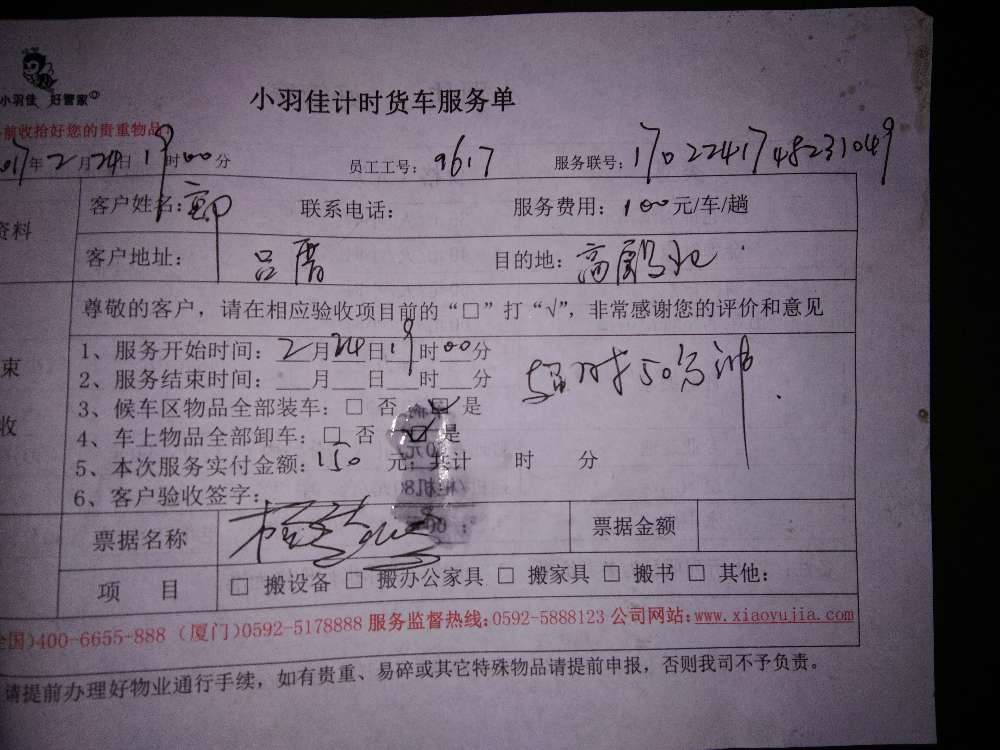 小羽佳 好管家
小羽佳计时货车服务单
前收拾好您的贵重物品
2017年2月24日19时00分 员工工号：9617 服务联号：1702241748231049
资料
客户姓名：郭 联系电话： 服务费用：100元/车/趟
客户地址：吕厝 目的地：高殿北
尊敬的客户，请在相应验收项目前的“□”打“√”，非常感谢您的评价和意见
束
收
1、服务开始时间：2月24日19时00分
2、服务结束时间：___月___日___时___分
3、候车区物品全部装车：□ 否 ☑ 是
4、车上物品全部卸车：□ 否 ☑ 是
5、本次服务实付金额：150 元；共计 时 分
6、客户验收签字：
超时50另计
票据名称 票据金额
项 目 □ 搬设备 □ 搬办公家具 □ 搬家具 □ 搬书 □ 其他：
全国)400-6655-888（厦门)0592-5178888 服务监督热线：0592-5888123 公司网站：www.xiaoyujia.com
请提前办理好物业通行手续，如有贵重、易碎或其它特殊物品请提前申报，否则我司不予负责。